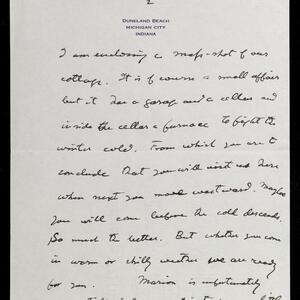 2
DUNELAND BEACH
MICHIGAN CITY
INDIANA
I am enclosing a snap-shot of our
cottage. It is of course a small affair
but it has a garage and a cellar and
inside the cellar a furnace to fight the
winter cold. From which you are to
conclude that you will visit us here
when next you move westward. Maybe
you will come before the cold descends.
So much the better. But whether you come
in warm or chilly weather we are ready
for you. Marion is unfortunately